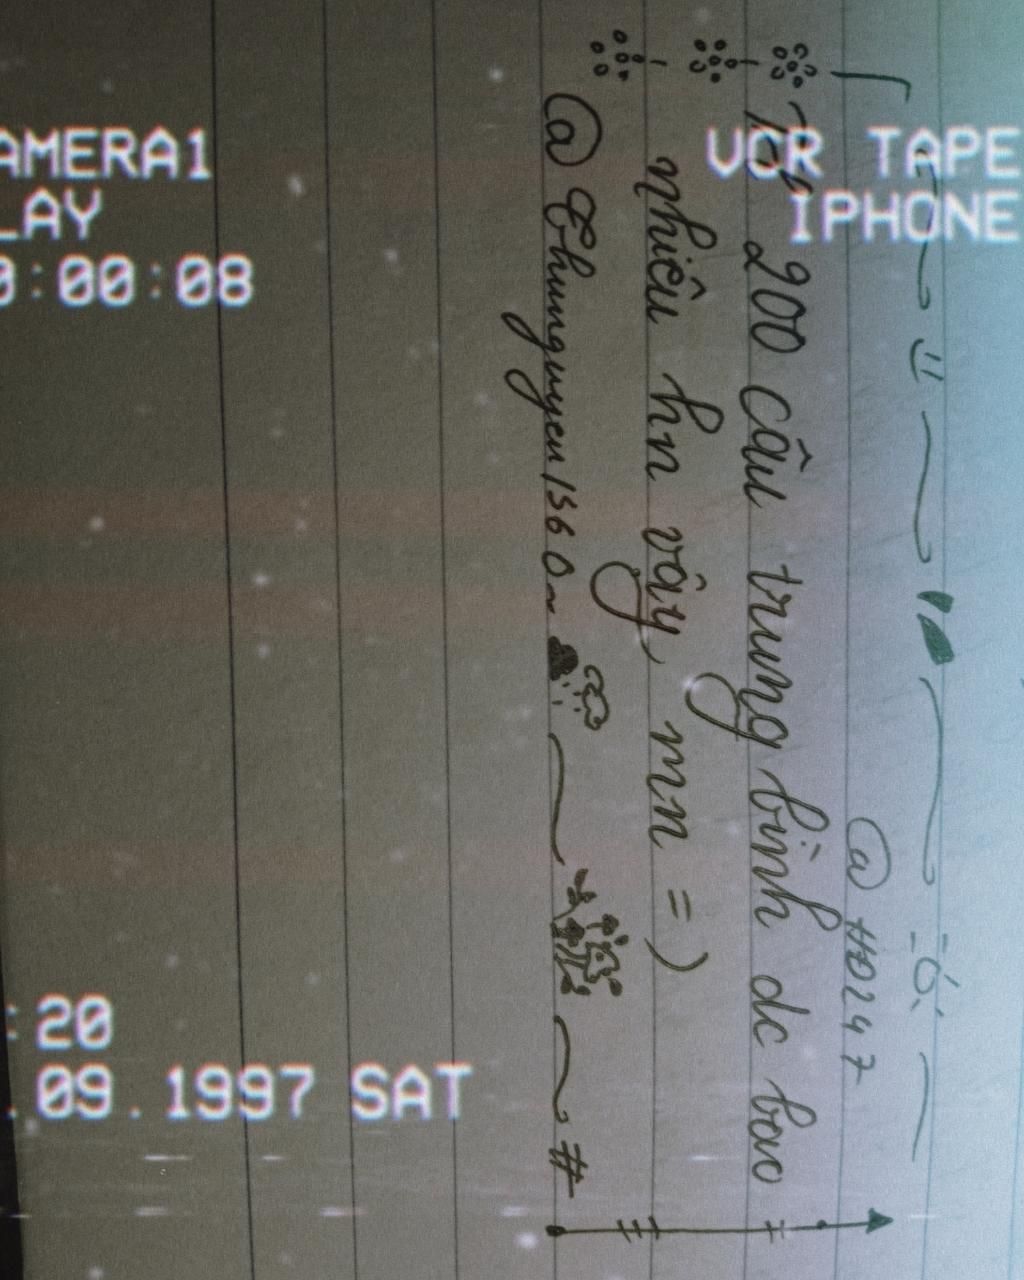 AMERA1
LAY
0:00:08
VCR TAPE
IPHONE
@HĐ247
Trl 200 câu trung bình dc bao
nhiêu hn vậy, mn =)
@Thungnguyen1560~
#
:20
.09.1997 SAT